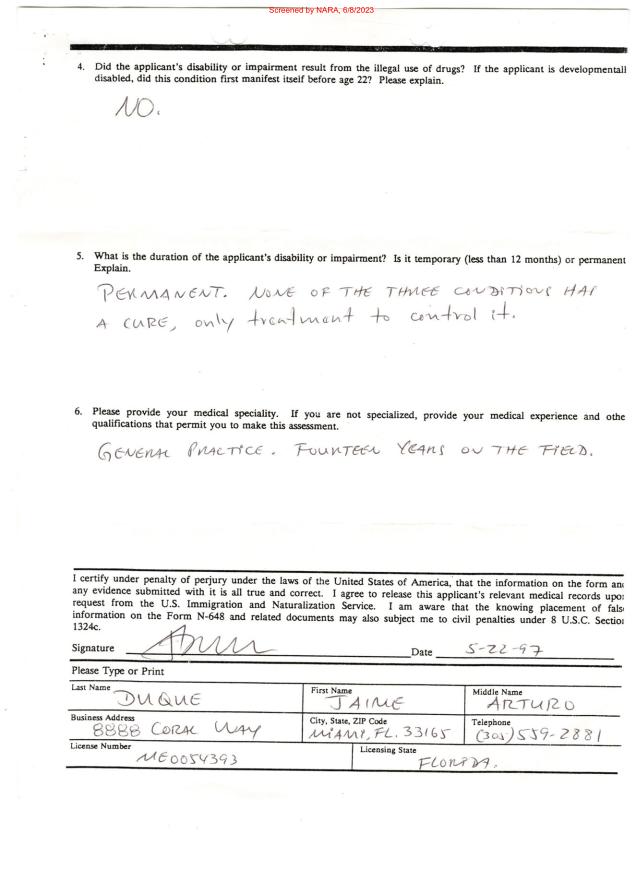 Screened by NARA, 6/8/2023
4. Did the applicant's disability or impairment result from the illegal use of drugs? If the applicant is developmentall
disabled, did this condition first manifest itself before age 22? Please explain.
NO.
5. What is the duration of the applicant's disability or impairment? Is it temporary (less than 12 months) or permanent
Explain.
PERMANENT. NONE OF THE THREE CONDITIONS HAS
A CURE, only treatment to control it.
6. Please provide your medical speciality. If you are not specialized, provide your medical experience and othe
qualifications that permit you to make this assessment.
GENERAL PRACTICE. FOURTEEN YEARS ON THE FIELD.
I certify under penalty of perjury under the laws of the United States of America, that the information on the form and
any evidence submitted with it is all true and correct. I agree to release this applicant's relevant medical records upon
request from the U.S. Immigration and Naturalization Service. I am aware that the knowing placement of fals
information on the Form N-648 and related documents may also subject me to civil penalties under 8 U.S.C. Section
1324c.
Signature Date 5-22-97
Please Type or Print
Last Name First Name Middle Name
DUQUE JAIME ARTURO
Business Address City, State, ZIP Code Telephone
8888 CORAL WAY MIAMI, FL. 33165 (305) 559-2881
License Number Licensing State
ME0054393 FLORIDA.